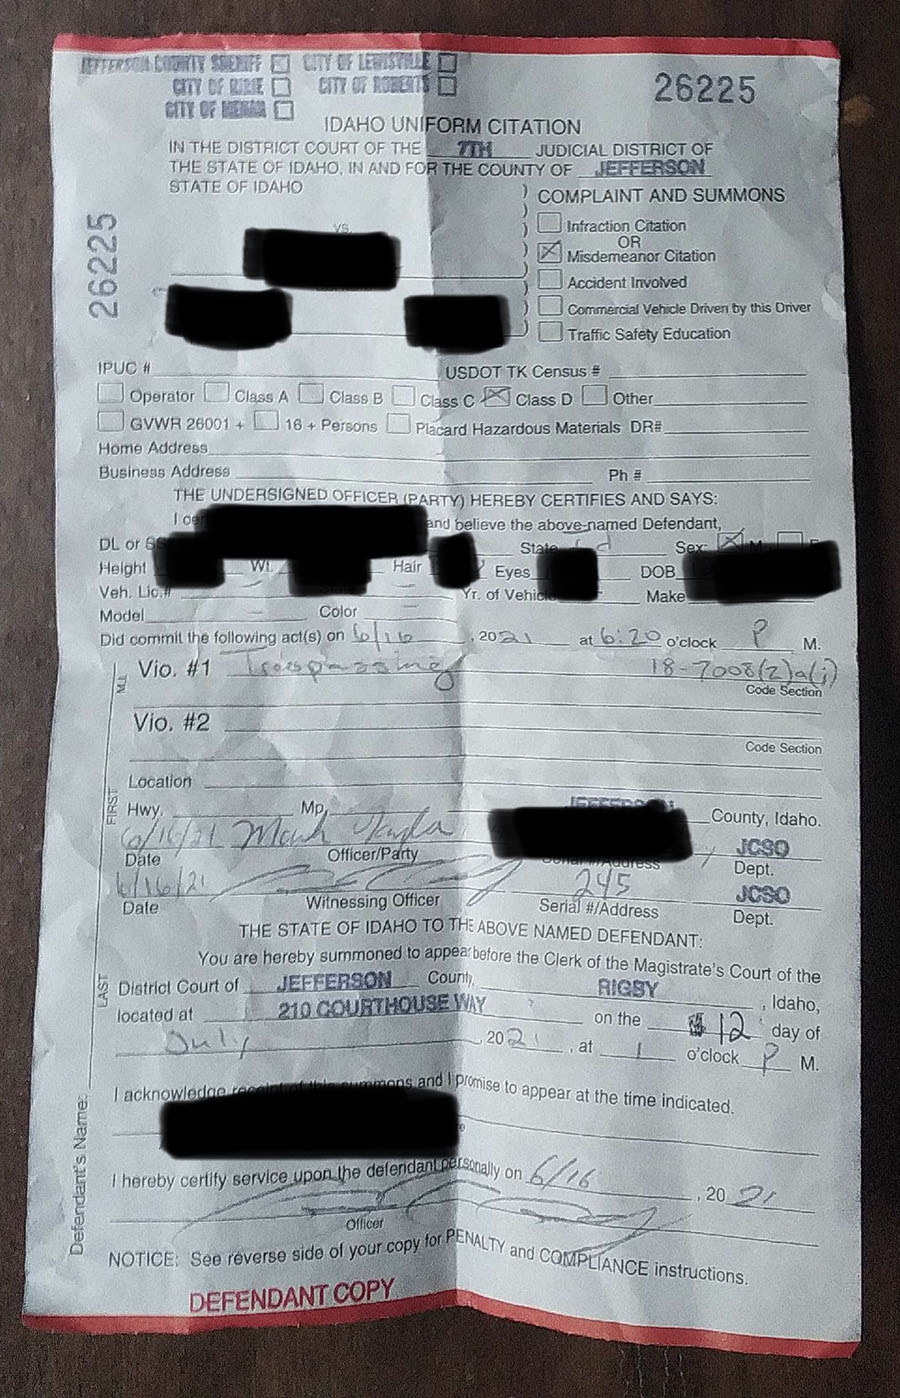 JEFFERSON COUNTY SHERIFF CITY OF LEWISVILLE
CITY OF RIRIE CITY OF ROBERTS
CITY OF MENAN
26225
IDAHO UNIFORM CITATION
IN THE DISTRICT COURT OF THE 7TH JUDICIAL DISTRICT OF
THE STATE OF IDAHO, IN AND FOR THE COUNTY OF JEFFERSON
STATE OF IDAHO
COMPLAINT AND SUMMONS
26225
vs.
Infraction Citation
OR
Misdemeanor Citation
Accident Involved
Commercial Vehicle Driven by this Driver
Traffic Safety Education
IPUC # USDOT TK Census #
Operator Class A Class B Class C Class D Other
GVWR 26001 + 16 + Persons Placard Hazardous Materials DR#
Home Address
Business Address Ph #
THE UNDERSIGNED OFFICER (PARTY) HEREBY CERTIFIES AND SAYS:
I and believe the above-named Defendant,
DL or State Id Sex: M
Height Wt. Hair Eyes DOB
Veh. Lic.# Yr. of Vehicle Make
Model Color
Did commit the following act(s) on 6/16, 2021 at 6:20 o'clock P M.
Vio. #1 Trespassing 18-7008(2)a(i)
Code Section
Vio. #2
Code Section
Location
Hwy. Mp. JEFFERSON County, Idaho.
6/16/21 JCSO
Date Officer/Party Serial #/Address Dept.
6/16/21 245 JCSO
Date Witnessing Officer Serial #/Address Dept.
THE STATE OF IDAHO TO THE ABOVE NAMED DEFENDANT:
You are hereby summoned to appear before the Clerk of the Magistrate's Court of the
District Court of JEFFERSON County, RIGBY, Idaho,
located at 210 COURTHOUSE WAY on the 12 day of
July, 2021, at 1 o'clock P M.
I acknowledge receipt of this summons and I promise to appear at the time indicated.
I hereby certify service upon the defendant personally on 6/16, 2021
Officer
NOTICE: See reverse side of your copy for PENALTY and COMPLIANCE instructions.
DEFENDANT COPY
Defendant's Name: LAST FIRST M.I.